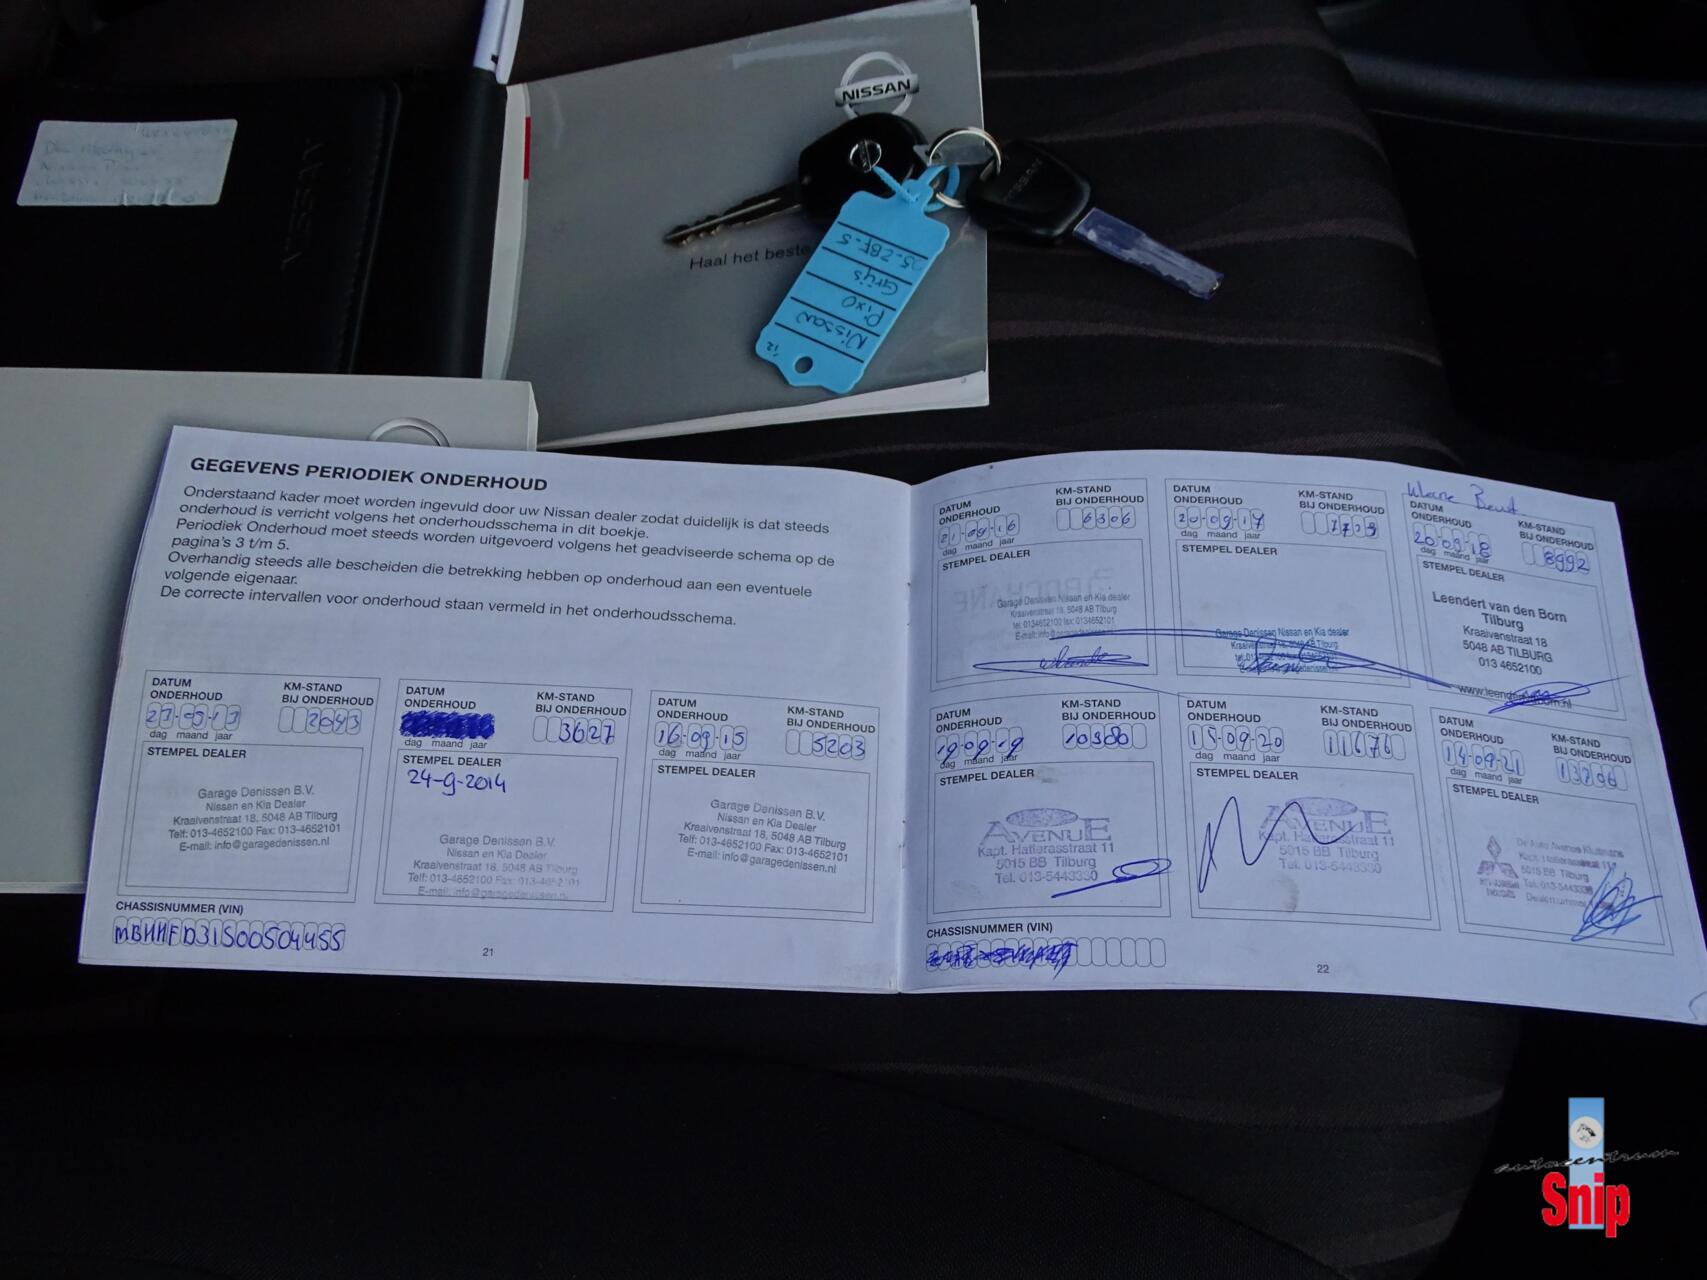 NISSAN
NISSAN
Haal het beste
Nissan
Pixo
Grijs
25-ZBF-5
NISSAN
GEGEVENS PERIODIEK ONDERHOUD
Onderstaand kader moet worden ingevuld door uw Nissan dealer zodat duidelijk is dat steeds
onderhoud is verricht volgens het onderhoudsschema in dit boekje.
Periodiek Onderhoud moet steeds worden uitgevoerd volgens het geadviseerde schema op de
pagina's 3 t/m 5.
Overhandig steeds alle bescheiden die betrekking hebben op onderhoud aan een eventuele
volgende eigenaar.
De correcte intervallen voor onderhoud staan vermeld in het onderhoudsschema.
DATUM
ONDERHOUD
KM-STAND
BIJ ONDERHOUD
2043
dag maand jaar
STEMPEL DEALER
Garage Denissen B.V.
Nissan en Kia Dealer
Kraaivenstraat 18, 5048 AB Tilburg
Telf: 013-4652100 Fax: 013-4652101
E-mail: info@garagedenissen.nl
DATUM
ONDERHOUD
KM-STAND
BIJ ONDERHOUD
3627
dag maand jaar
STEMPEL DEALER
24-9-2014
Garage Denissen B.V.
Nissan en Kia Dealer
Kraaivenstraat 18, 5048 AB Tilburg
Telf: 013-4652100 Fax: 013-4652101
E-mail: info@garagedenissen.nl
DATUM
ONDERHOUD
KM-STAND
BIJ ONDERHOUD
16-09-15
5203
dag maand jaar
STEMPEL DEALER
Garage Denissen B.V.
Nissan en Kia Dealer
Kraaivenstraat 18, 5048 AB Tilburg
Telf: 013-4652100 Fax: 013-4652101
E-mail: info@garagedenissen.nl
CHASSISNUMMER (VIN)
21
DATUM
ONDERHOUD
KM-STAND
BIJ ONDERHOUD
21-09-16
6306
dag maand jaar
STEMPEL DEALER
Garage Denissen Nissan en Kia dealer
Kraaivenstraat 18, 5048 AB Tilburg
tel: 0134652100 fax: 0134652101
DATUM
ONDERHOUD
KM-STAND
BIJ ONDERHOUD
20-09-17
dag maand jaar
STEMPEL DEALER
Garage Denissen Nissan en Kia dealer
Kraaivenstraat 18, 5048 AB Tilburg
DATUM
ONDERHOUD
KM-STAND
BIJ ONDERHOUD
20-09-18
8992
dag maand jaar
STEMPEL DEALER
Leendert van den Born
Tilburg
Kraaivenstraat 18
5048 AB TILBURG
013 4652100
DATUM
ONDERHOUD
KM-STAND
BIJ ONDERHOUD
19-09-19
10380
dag maand jaar
STEMPEL DEALER
AVENUE
Kapt. Hatterasstraat 11
5015 BB Tilburg
Tel. 013-5443330
DATUM
ONDERHOUD
KM-STAND
BIJ ONDERHOUD
15-09-20
11676
dag maand jaar
STEMPEL DEALER
AVENUE
Kapt. Hatterasstraat 11
5015 BB Tilburg
Tel. 013-5443330
DATUM
ONDERHOUD
KM-STAND
BIJ ONDERHOUD
14-09-21
13206
dag maand jaar
STEMPEL DEALER
5015 BB Tilburg
CHASSISNUMMER (VIN)
22
autocentrum
Snip